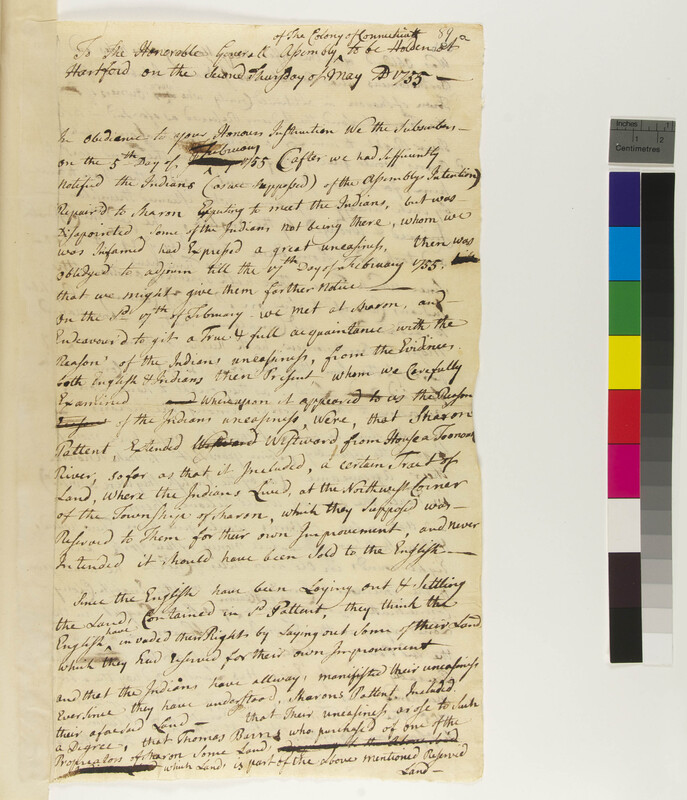 of The Colony of Connecticutt 89a
To The Honorable Generall Assembly to be Holden at
Hartford on the Second Thursday of May AD 1755
In obediance to your Honours Instruction We the Subscribers
on the 5th Day of February 1755 (after we had Sufficently
notified the Indians (as we Supposed) of the Assemblys Intention)
Repair'd to Sharon Expecting to meet the Indians, but was
Disapointed Some of the Indians not being there, whom we
was Informed had Expressed a great uneasiness, then was
obliedged to adjourn till the 17th Day of February 1755.
that we might give them farther Notice
On the Sd 17th of February we met at Sharon, and
Endeavour'd to git a True & full acquaintance with the
Reason of the Indians uneasiness, from the Evidences
both English & Indians then Present whom we Carefully
Examined Whereupon it appeared to us the Reason
of the Indians uneasiness, Were, that Sharon
Pattent, Extended Westward from Housatoonock
River, so far as that it Included, a certain Tract of
Land, Where the Indians Lived, at the Northwest Corner
of the Township of Sharon, which they Supposed was
Reserved to Them for their own Improvement, and never
Intended it should have been Sold to the English
Since the English have been Laying out & Settling
the Land, Contained in Sd Pattent, they think the
English have invaded their Rights by Laying out Some of their Land
which they had reserved for their own Improvement
and that the Indians have allways manifisted their uneasiness
Ever Since they have understood, Sharons Pattent, Included
their afore Sd Land that Their uneasiness arose to Such
a Degree, that Thomas Barns who purchased of one of the
Propreators of Sharon Some Land
which Land, is part of the above mentioned Reserved
Land